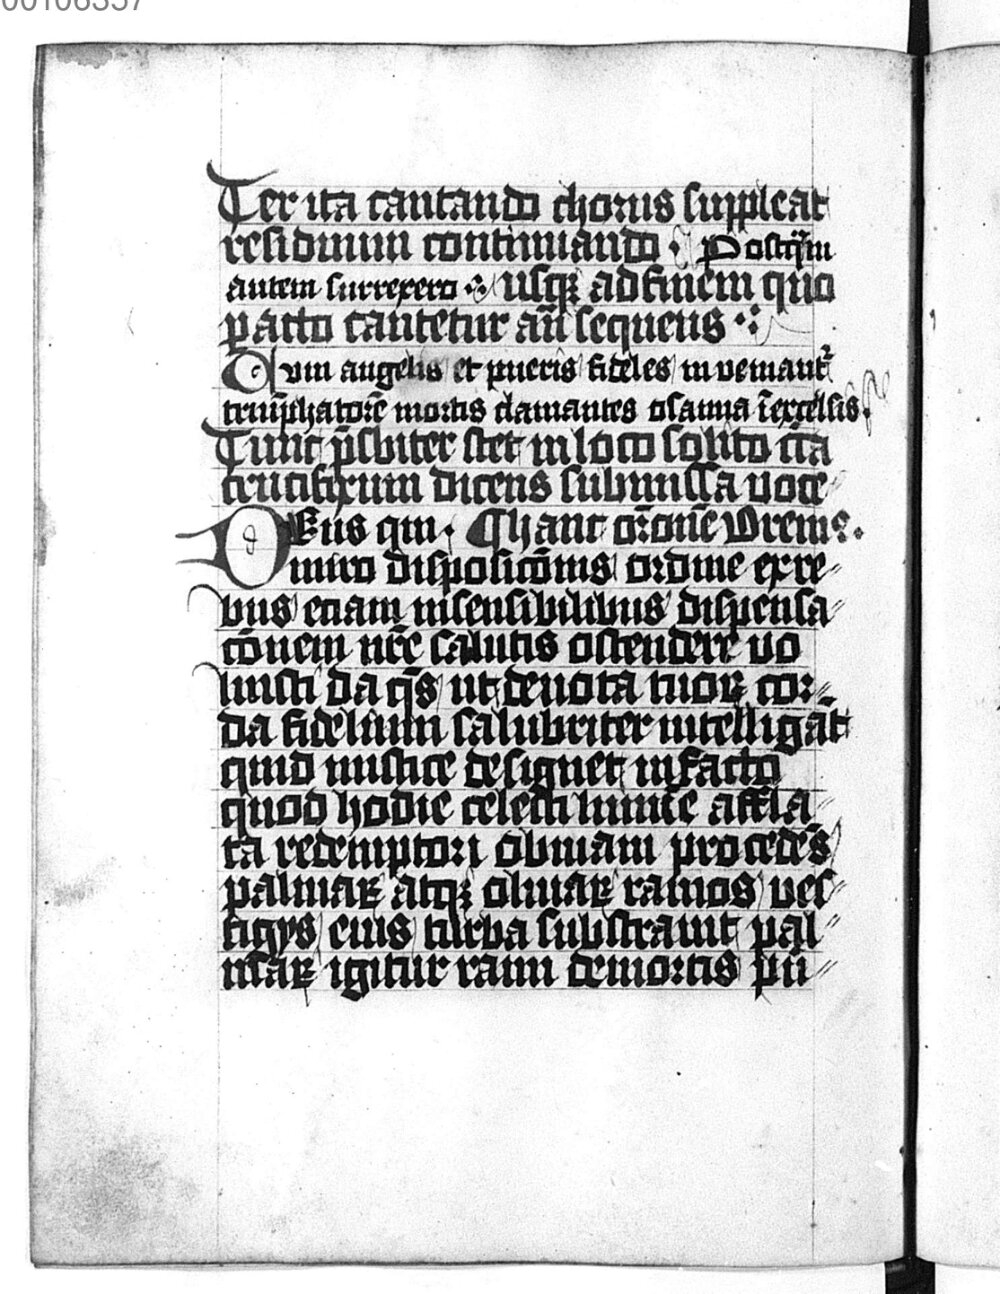 00106357
Ter ita cantando chorus suppleat
residuum continuando · Postq̃m
autem surrexero ·:· usqꝫ ad finem quo
pacto cantetur an̄ sequens ·:·
Cum angelis et pueris fideles inveniant᷑
triu̅phatore̅ mortis clamantes osanna i̅ excelsis.
Tunc p̅sbiter stet in loco solito cͨta
crucifixum dicens submissa voce
DEus qui · Chant or̅one̅ Oremus.
miro disposico̅nis ordine ex re
bus etiam insensibilibus dispensa
co̅nem nr̅e salutis ostendere vo
luisti da qs̅ ut devota tuoꝝ cor
da fidelium salubriter intelligãt
quid mistice designet in facto
quod hodie celesti lumi̅e affla
ta redemptori obviam procede̅s
palmaꝝ atqꝫ olivaꝝ ramos ves
tigys eius turba substravit pal
maꝝ igitur rami demortis p̅ri